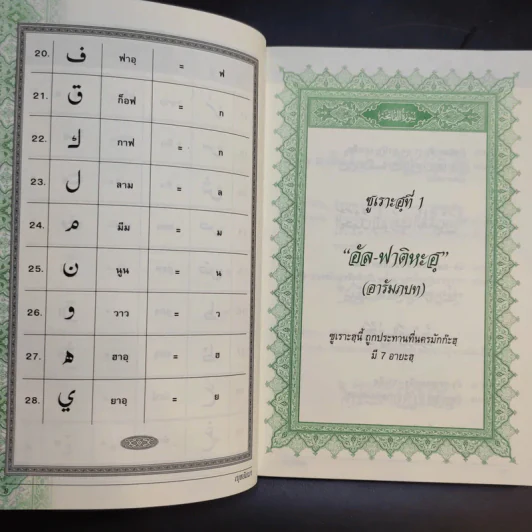 20. ف ฟาอฺ = ฟ
21. ق ก็อฟ = ก
22. ك กาฟ = ก
23. ل ลาม = ล
24. م มีม = ม
25. ن นูน = น
26. و วาว = ว
27. ه ฮาอฺ = ฮ
28. ي ยาอฺ = ย
ซูเราะฮฺที่ 1
“อัล-ฟาติหะฮฺ”
(อารัมภบท)
ซูเราะฮฺนี้ ถูกประทานที่นครมักก๊ะฮฺ
มี 7 อายะฮฺ